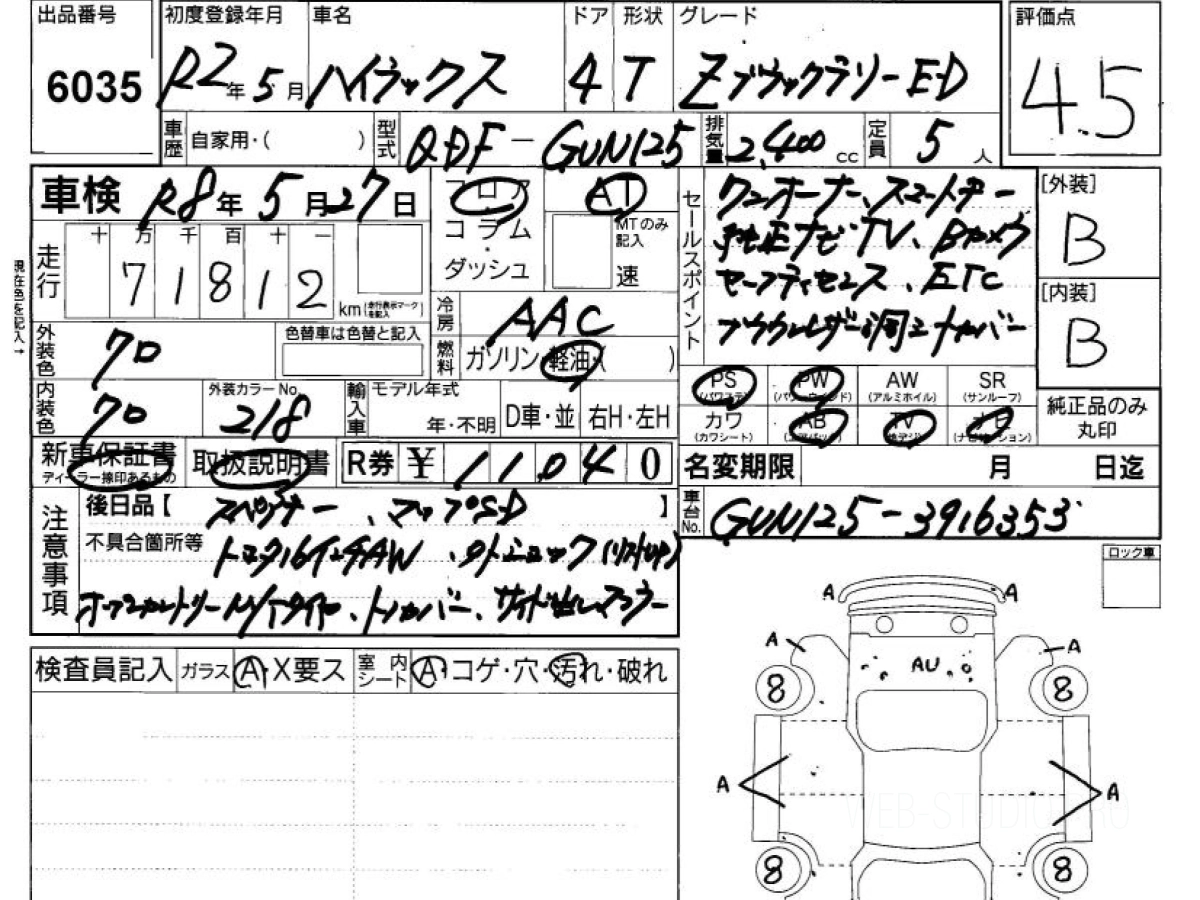 出品番号 初度登録年月 車名 ドア 形状 グレード 評価点
6035 R2年5月 ハイラックス 4 T Zブラックラリー ED 4.5
車歴 自家用・( ) 型式 QDF-GUN125 排気量 2,400cc 定員 5人
車検 R8年5月27日 フロア AT セールスポイント ワンオーナー、スマートキー [外装]
コラム MTのみ記入 純正ナビTV、Bカメラ B
走行 十 万 千 百 十 一 ・ダッシュ 速 セーフティセンス、ETC [内装]
71812 km(走行表示マークを記入) 冷房 AAC B
現在色を記入→
外装色 クロ 色替車は色替と記入 燃料 ガソリン・軽油・( )
PS(パワステ) PW(パワーウインド) AW(アルミホイル) SR(サンルーフ)
内装色 クロ 外装カラーNo. 218 輸入車 モデル年式 年・不明 D車・並 右H・左H カワ(カワシート) AB(エアバック) TV(地デジ) ナビ(ナビゲーション) 純正品のみ丸印
新車保証書 ディーラー捺印あるもの 取扱説明書 R券 ¥ 11,040 名変期限 月 日迄
注意事項 後日品【スペアキー、マップSD】 車台No. GUN125-3916353
不具合箇所等
ロック車
検査員記入 ガラス A・X要ス 室内シート A・コゲ・穴・汚れ・破れ
A A
A A
AU
8 8
A A
WEB-STUDIO.RO
8 8